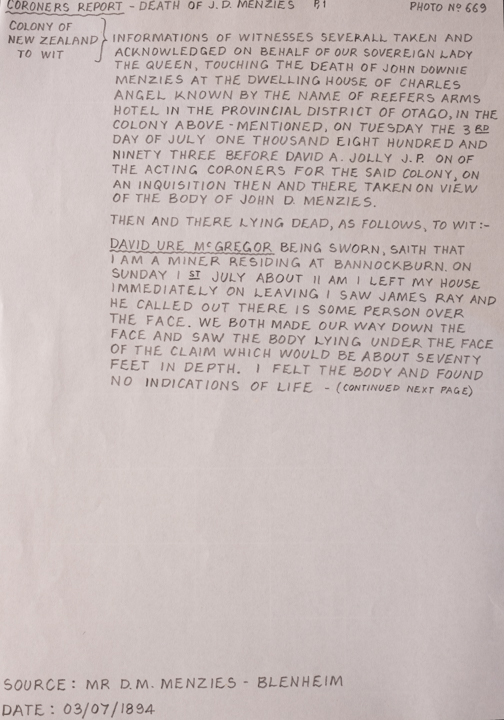 CORONERS REPORT - DEATH OF J.D. MENZIES P.1 PHOTO Nº 669
COLONY OF
NEW ZEALAND
TO WIT
INFORMATIONS OF WITNESSES SEVERALL TAKEN AND
ACKNOWLEDGED ON BEHALF OF OUR SOVEREIGN LADY
THE QUEEN, TOUCHING THE DEATH OF JOHN DOWNIE
MENZIES AT THE DWELLING HOUSE OF CHARLES
ANGEL KNOWN BY THE NAME OF REEFERS ARMS
HOTEL IN THE PROVINCIAL DISTRICT OF OTAGO, IN THE
COLONY ABOVE-MENTIONED, ON TUESDAY THE 3RD
DAY OF JULY ONE THOUSAND EIGHT HUNDRED AND
NINETY THREE BEFORE DAVID A. JOLLY J.P. ON OF
THE ACTING CORONERS FOR THE SAID COLONY, ON
AN INQUISITION THEN AND THERE TAKEN ON VIEW
OF THE BODY OF JOHN D. MENZIES.
THEN AND THERE LYING DEAD, AS FOLLOWS, TO WIT:-
DAVID URE McGREGOR BEING SWORN, SAITH THAT
I AM A MINER RESIDING AT BANNOCKBURN. ON
SUNDAY 1ST JULY ABOUT 11 AM I LEFT MY HOUSE
IMMEDIATELY ON LEAVING I SAW JAMES RAY AND
HE CALLED OUT THERE IS SOME PERSON OVER
THE FACE. WE BOTH MADE OUR WAY DOWN THE
FACE AND SAW THE BODY LYING UNDER THE FACE
OF THE CLAIM WHICH WOULD BE ABOUT SEVENTY
FEET IN DEPTH. I FELT THE BODY AND FOUND
NO INDICATIONS OF LIFE - (CONTINUED NEXT PAGE)
SOURCE: MR D.M. MENZIES - BLENHEIM
DATE: 03/07/1894